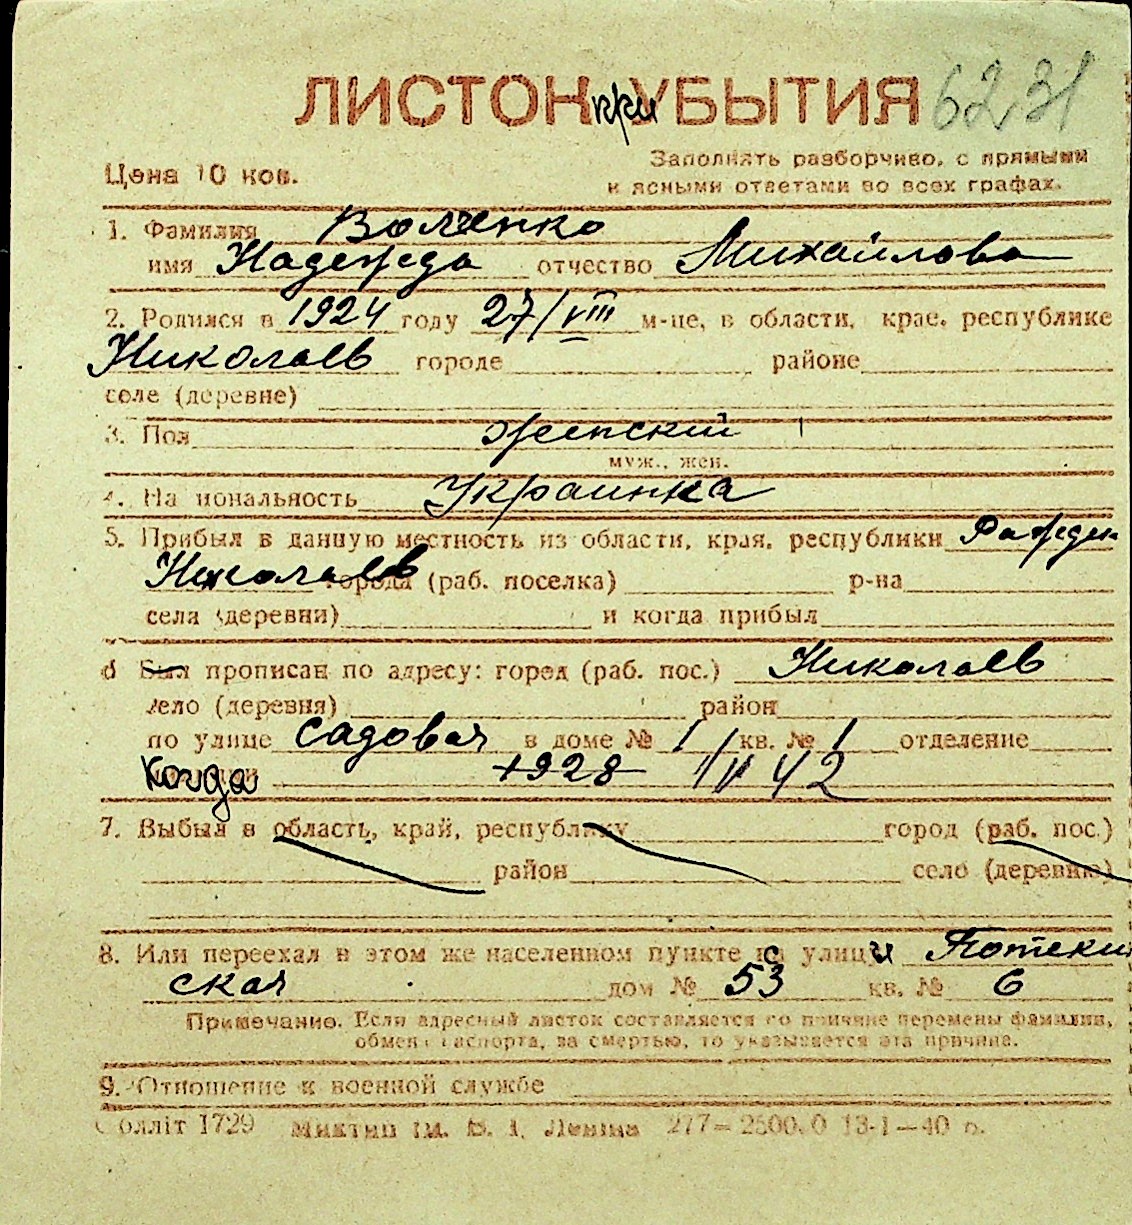 ЛИСТОК при УБЫТИЯ 6231
Цена 10 коп.
Заполнять разборчиво, с прямыми
и ясными ответами во всех графах.
1. Фамилия Волченко
имя Надежда отчество Михайлова
2. Родился в 1924 году 27/VIII м-це, в области, крае, республике
Николаев городе районе
селе (деревне)
3. Пол женский
муж., жен.
4. На иональность Украинка
5. Прибыл в данную местность из области, края, республики Рожден
Николаев города (раб. поселка) р-на
села (деревни) и когда прибыл
6 Был прописан по адресу: город (раб. пос.) Николаев
село (деревня) район
по улице Садовая в доме № 1 кв. № 1 отделение
когда 1928 1/V 42
7. Выбыл в область, край, республику город (раб. пос.)
район село (деревню)
8. Или переехал в этом же населенном пункте с улицы Потемкин
ская дом № 53 кв. № 6
Примечание. Если адресный листок составляется по причине перемены фамилии,
обмена паспорта, за смертью, то указывается эта причина.
9. Отношение к военной службе
олліт 1729 ім. В. І. Леніна 277—2500.0 13-1—40 р.